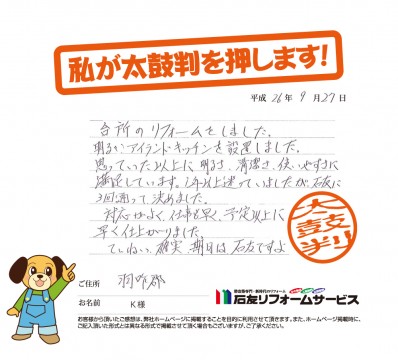 私が太鼓判を押します!
平成 26年 9月27日
台所のリフォームをしました。
明るいアイランドキッチンを設置しました。
思っていた以上に明るさ、清潔さ、使いやすさに
満足しています。1年以上迷っていましたが石友に
3回通って、決めました。
対応がよく、仕事も早く、予定以上に
早く仕上がりました。
ていねい、確実、期日は石友ですよ
太鼓判
ご住所 羽咋郡
お名前 K様
石友リフォームサービス
お客様から頂いたご感想は、弊社ホームページに掲載することを目的に利用させて頂きます。また、ホームページ掲載時に、
ご記入頂いた形式とは異なる形式で掲載させて頂く場合もございますが、ご了承ください。